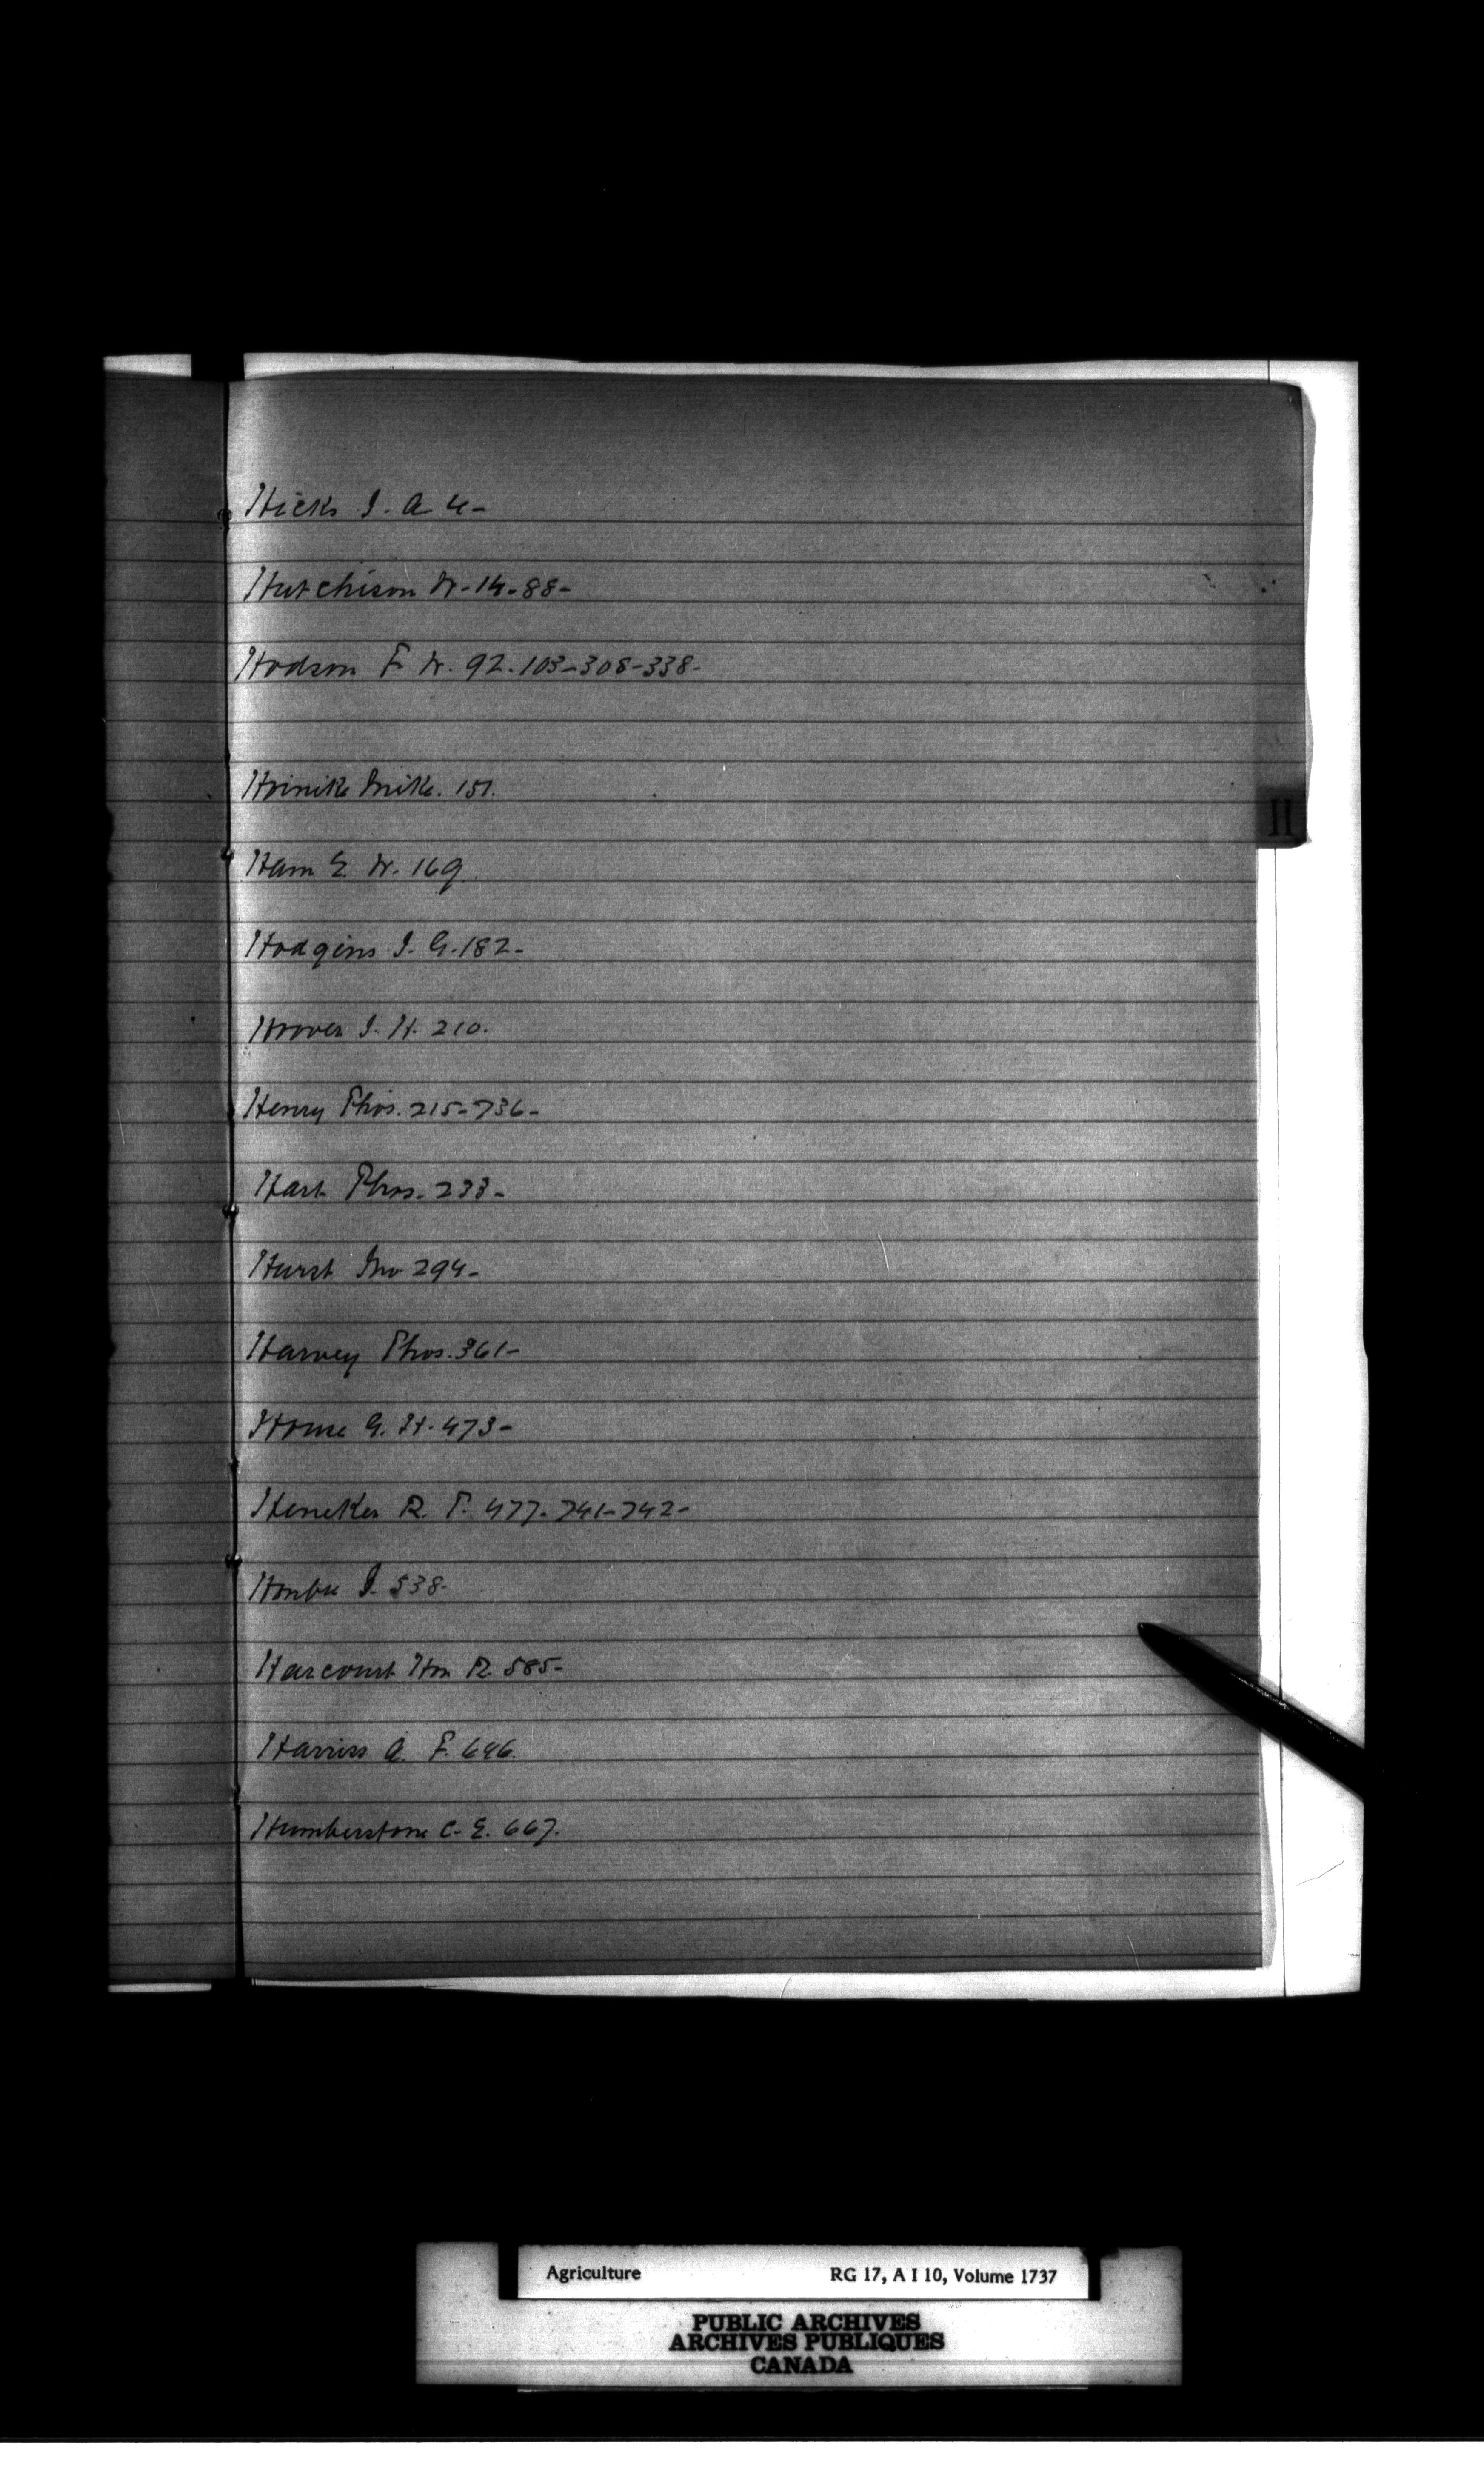 Hicks J. A 4-
Hutchison W-14-88-
Hodson F. W. 92-103-308-338-
Hrinik Mik. 151.
Ham E. W. 169
Hodgins J. G. 182-
Hoover J. H. 210.
Henry Thos. 215-736-
Hart Thos. 233-
Hurst Jno 294-
Harvey Thos. 361-
H
House G. H. 473-
Heneker R. T. 477-741-742-
J. 538-
Harcourt Hon R. 585-
Harriss A. F. 646.
Humberstone C. E. 667.
Agriculture RG 17, A I 10, Volume 1737
PUBLIC ARCHIVES
ARCHIVES PUBLIQUES
CANADA